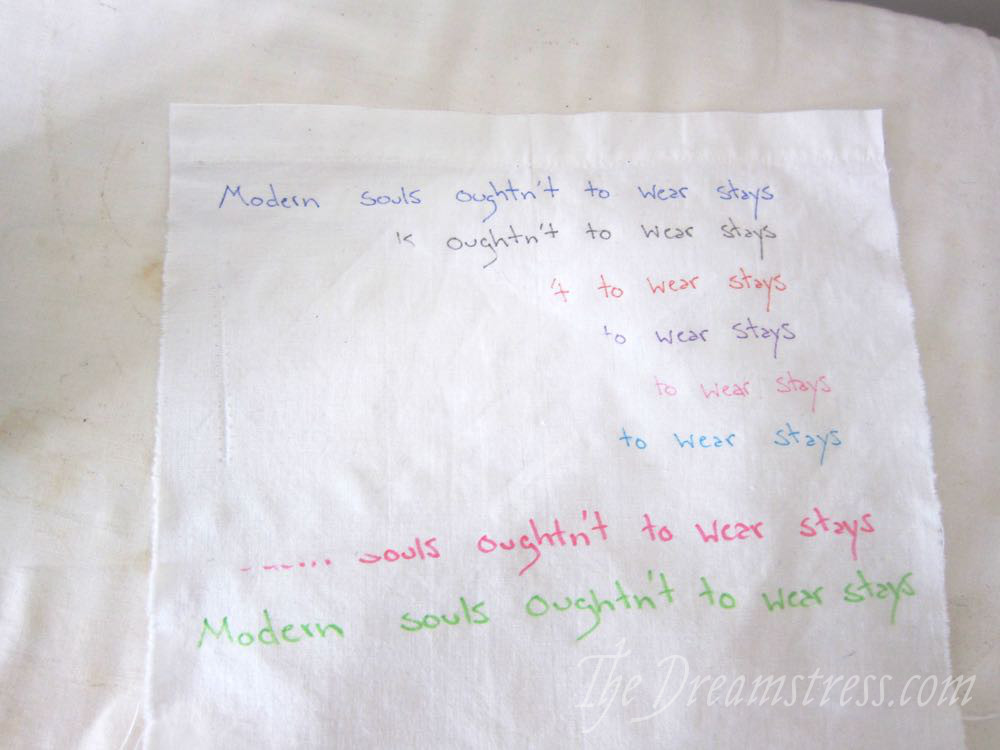 Modern souls oughtn't to wear stays
oughtn't to wear stays
't to wear stays
to wear stays
to wear stays
to wear stays
....... souls oughtn't to wear stays
Modern souls oughtn't to wear stays
The Dreamstress.com